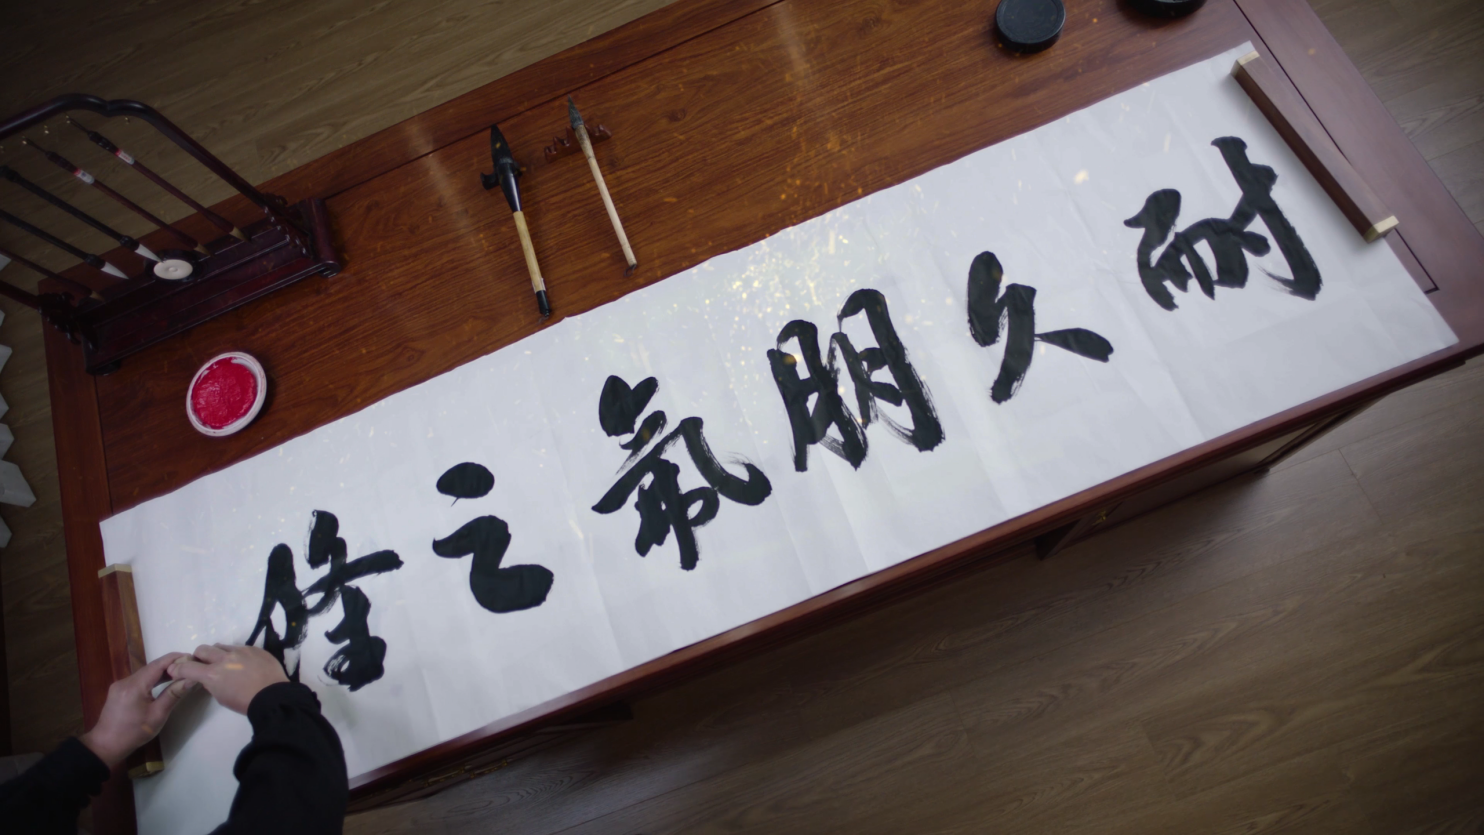 耐久朋氣之隆